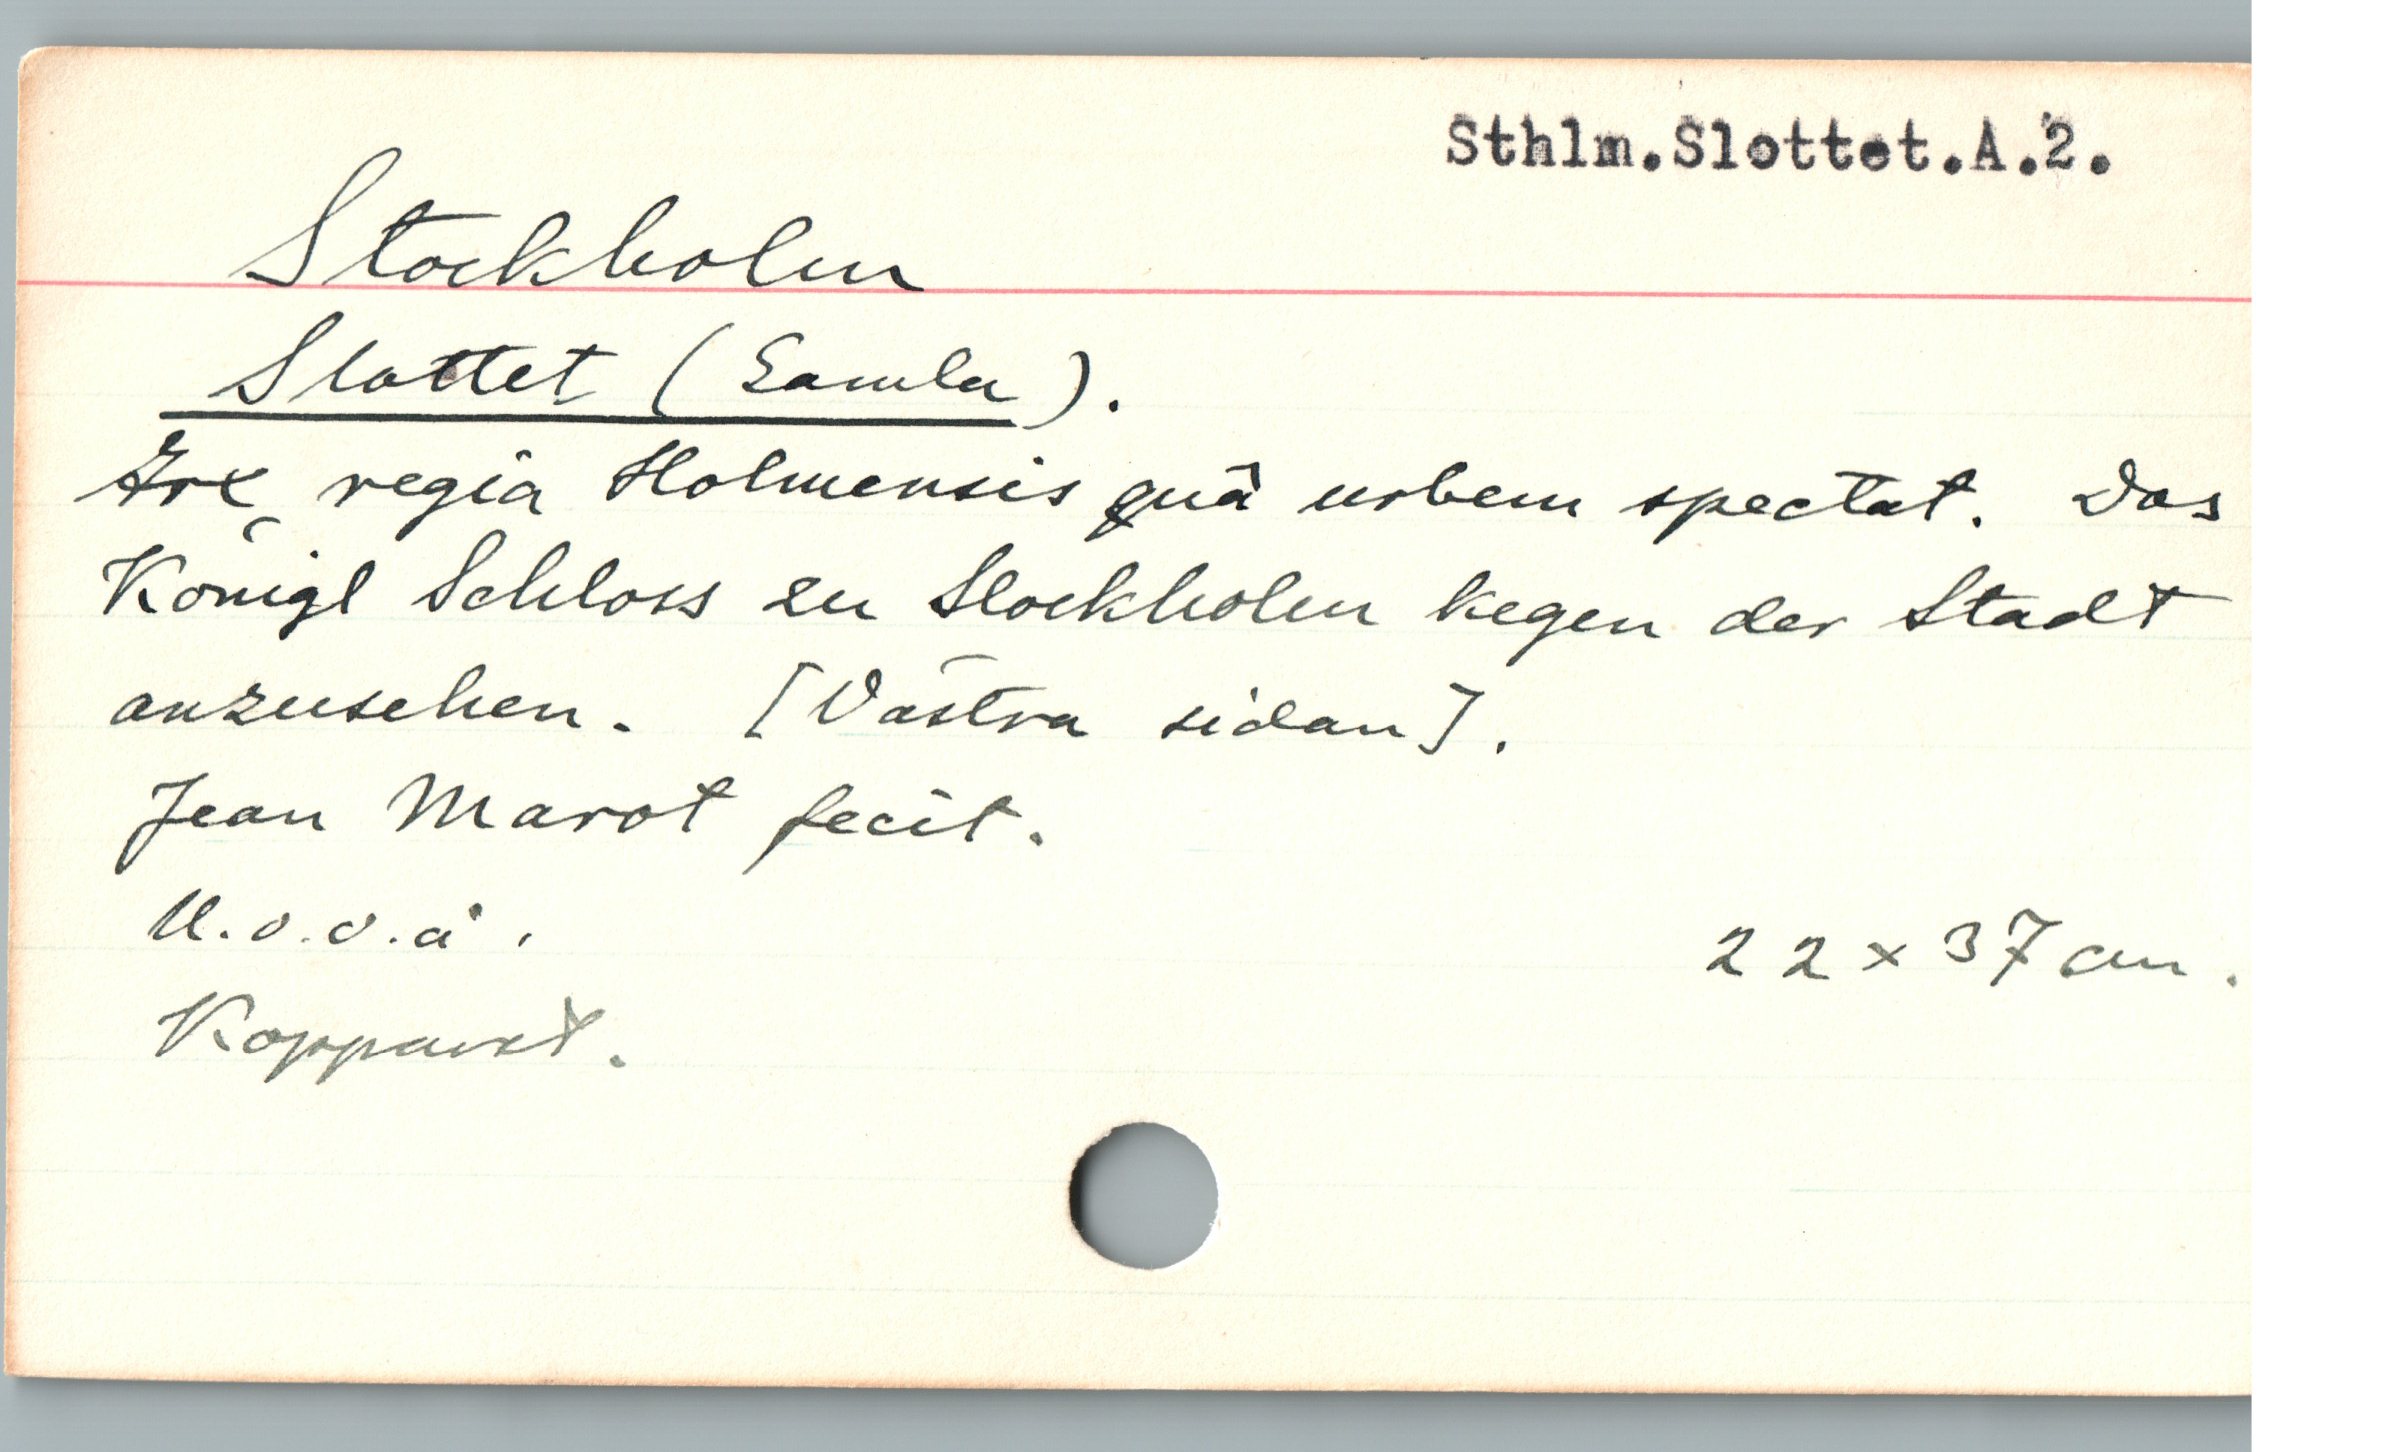 Sthlm.Slottet.A.2.
Stockholm
Slottet (Gamla).
Arx regia Holmensis quâ urbem spectat. Das
Königl Schloss zu Stockholm kegen der Stadt
anzusehen. [Västra sidan].
Jean Marot fecit.
U.o.o.å.
22 x 37 cm.
Kopparst.